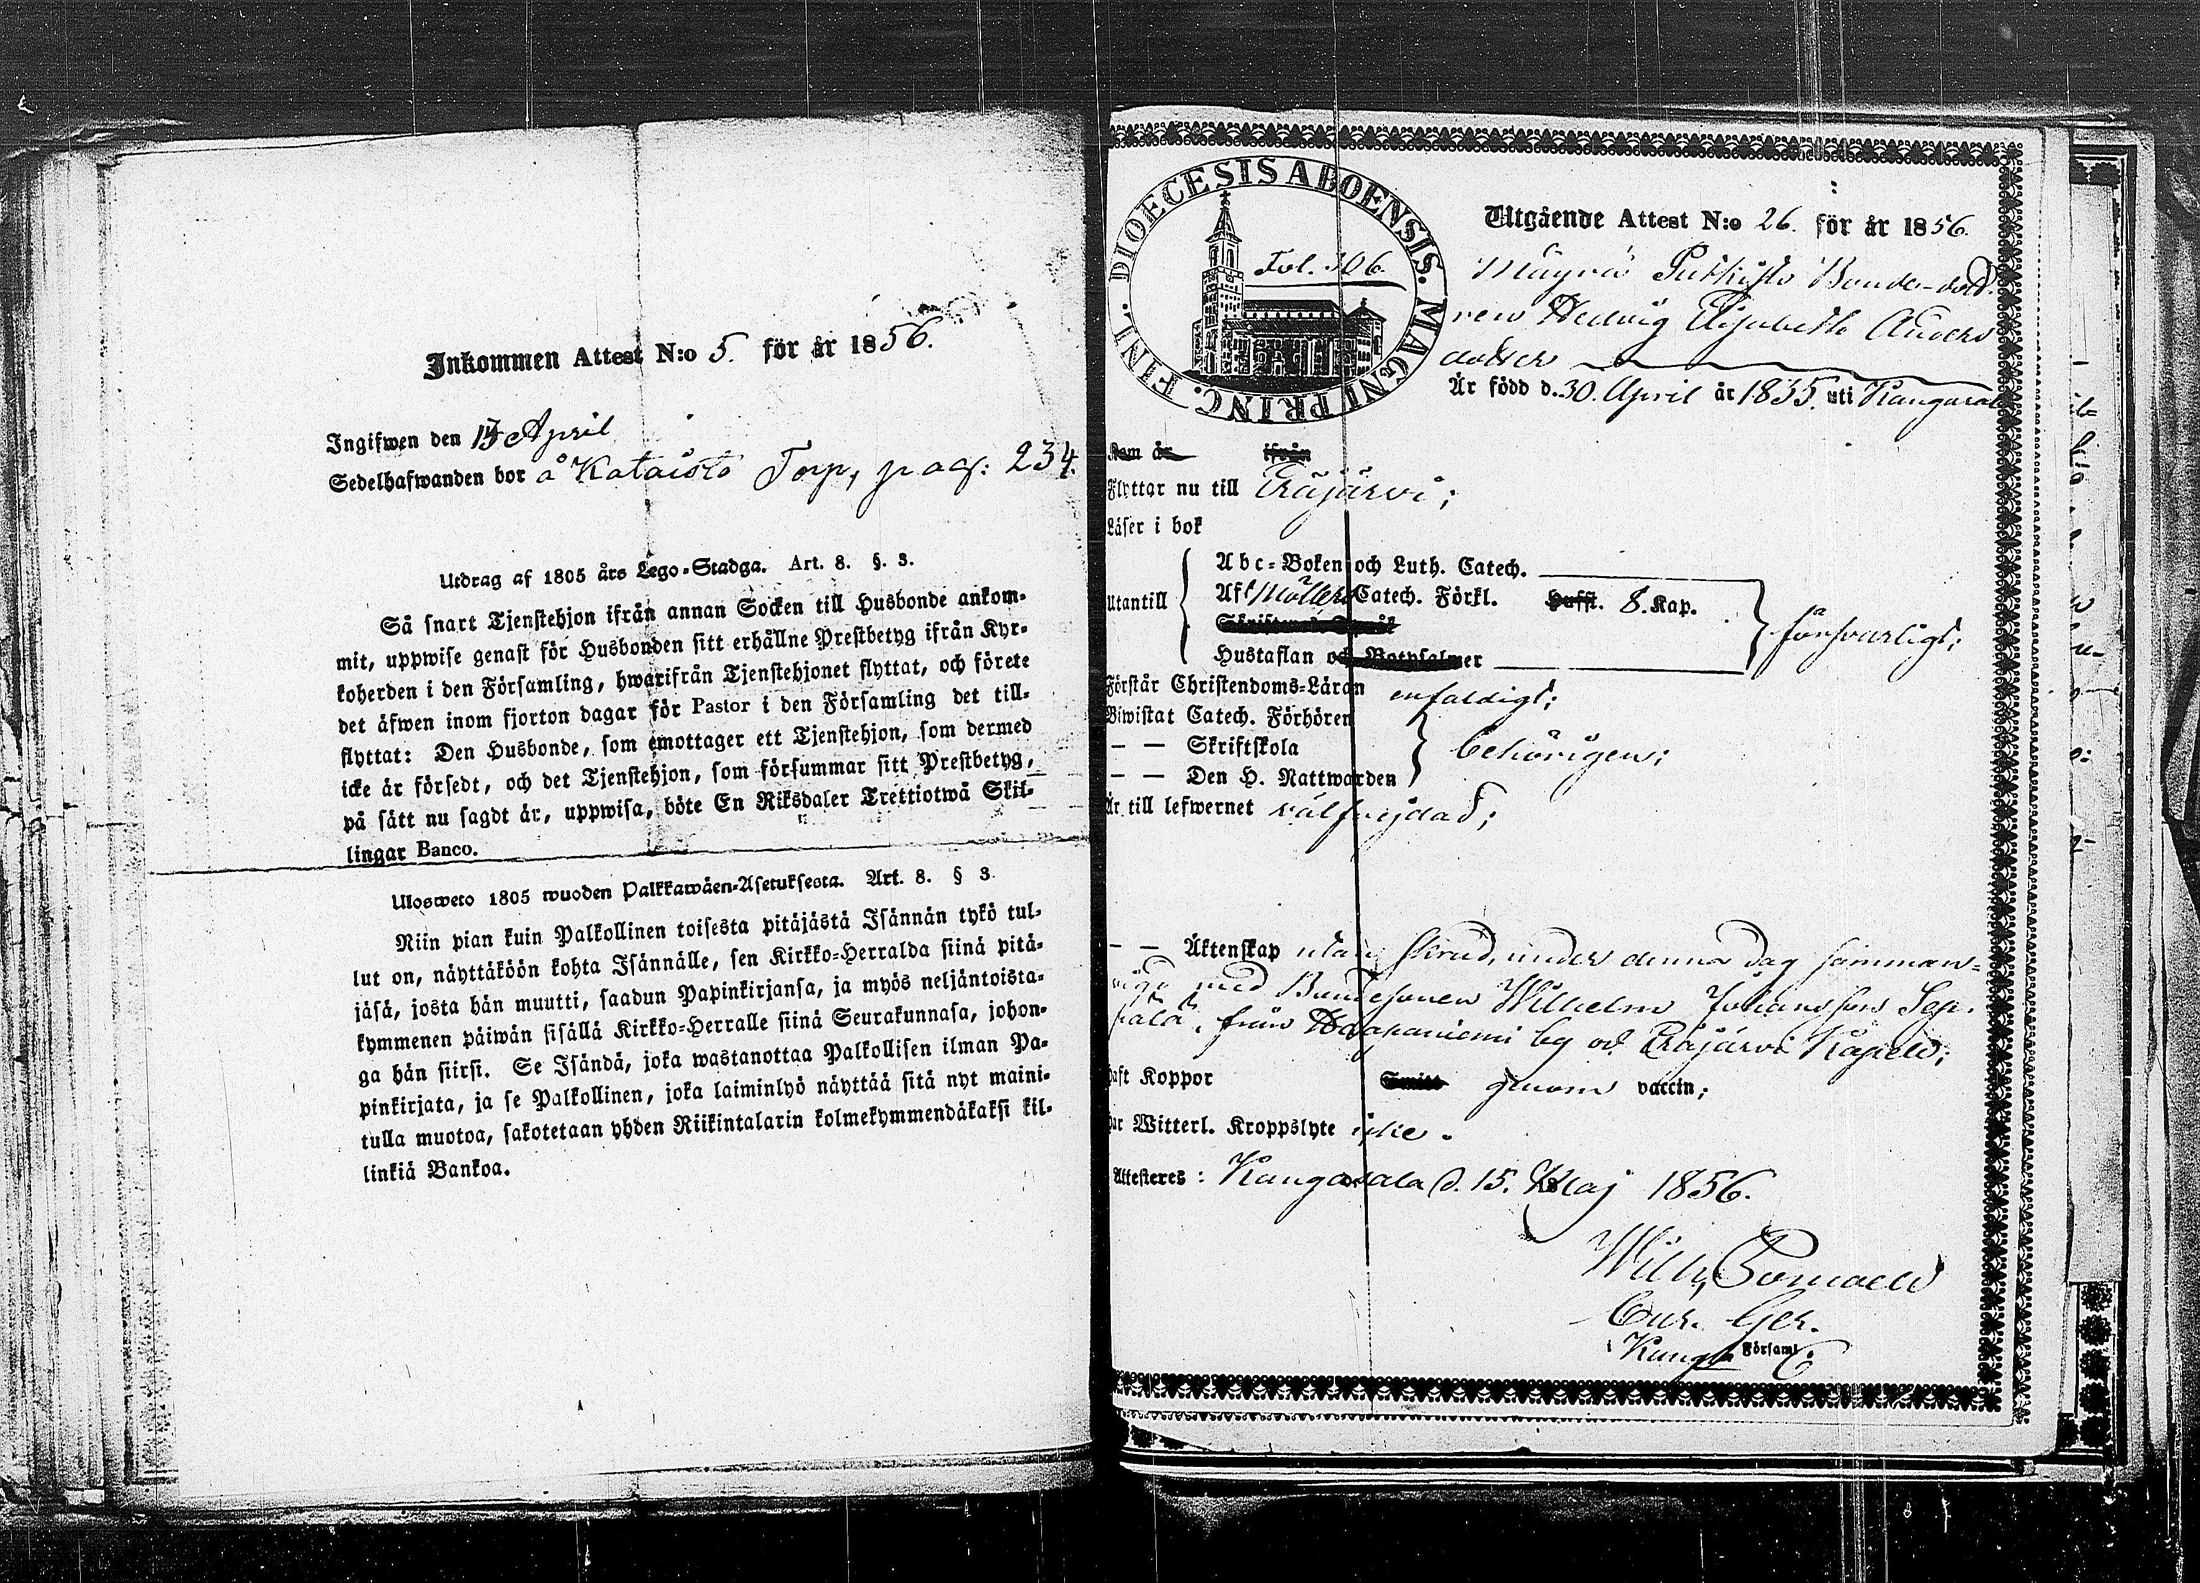 Inkommen Attest N:o 5. för år 1856.
Ingifwen den 15 April
Sedelhafwanden bor å Kataisto Torp, pag: 234.
Utdrag af 1805 års Lego-Stadga. Art. 8. §. 3.
Så snart Tjenstehjon ifrån annan Socken till Husbonde ankom-
mit, uppwise genast för Husbonden sitt erhållne Prestbetyg ifrån Kyr-
koherden i den Församling, hwarifrån Tjenstehjonet flyttat, och förete
det äfwen inom fjorton dagar för Pastor i den Församling det till-
flyttat: Den Husbonde, som emottager ett Tjenstehjon, som dermed
icke är försedt, och det Tjenstehjon, som försummar sitt Prestbetyg,
på sätt nu sagdt är, uppwisa, böte En Riksdaler Trettiotwå Skil-
lingar Banco.
Ulosweto 1805 wuoden Palkkawäen-Asetuksesta. Art. 8. § 3.
Niin pian kuin Palkollinen toisesta pitäjästä Isännän tykö tul-
lut on, näyttäköön kohta Isännälle, sen Kirkko-Herralda siinä pitä-
jäsä, josta hän muutti, saadun Papinkirjansa, ja myös neljäntoista-
kymmenen päiwän sisällä Kirkko-Herralle siinä Seurakunnasa, johon-
ga hän siirsi. Se Isändä, joka wastanottaa Palkollisen ilman Pa-
pinkirjata, ja se Palkollinen, joka laiminlyö näyttää sitä nyt maini-
tulla muotoa, sakotetaan yhden Riikintalarin kolmekymmendäkaksi kil-
linkiä Bankoa.
DIOECESIS ABOENSIS. MAGNI PRINC. FINL.
Fol. 306.
Utgående Attest N:o 26. för år 1856.
Bonde-dott
ren Hedvig Elisabeth Anders
dotter
Är född d. 30. April år 1835. uti Kangasala
Kom år ifrån
Flyttar nu till Eräjärvi;
Läser i bok
Utantill
Abc-Boken och Luth. Catech.
Af Möllers Catech. Förkl. Hufst. 8. Kap.
försvarligt;
Hustaflan och Botpsalmer
Förstår Christendoms-Läran enfaldigt;
Biwistat Catech. Förhören
— — Skriftskola
behörigen;
— — Den H. Nattwarden
Är till lefwernet välfrejdad;
— — Äktenskap utan under denna dag samman-
med Bondesonen Wilhelm Johansson Sep-
pälä, från Haapaniemi by och Eräjärvi Kapell;
Haft Koppor genom vaccin;
Har Witterl. Kroppslyte icke.
Attesteres: Kangasala d. 15. Maj 1856.
Wilh.
Församl.